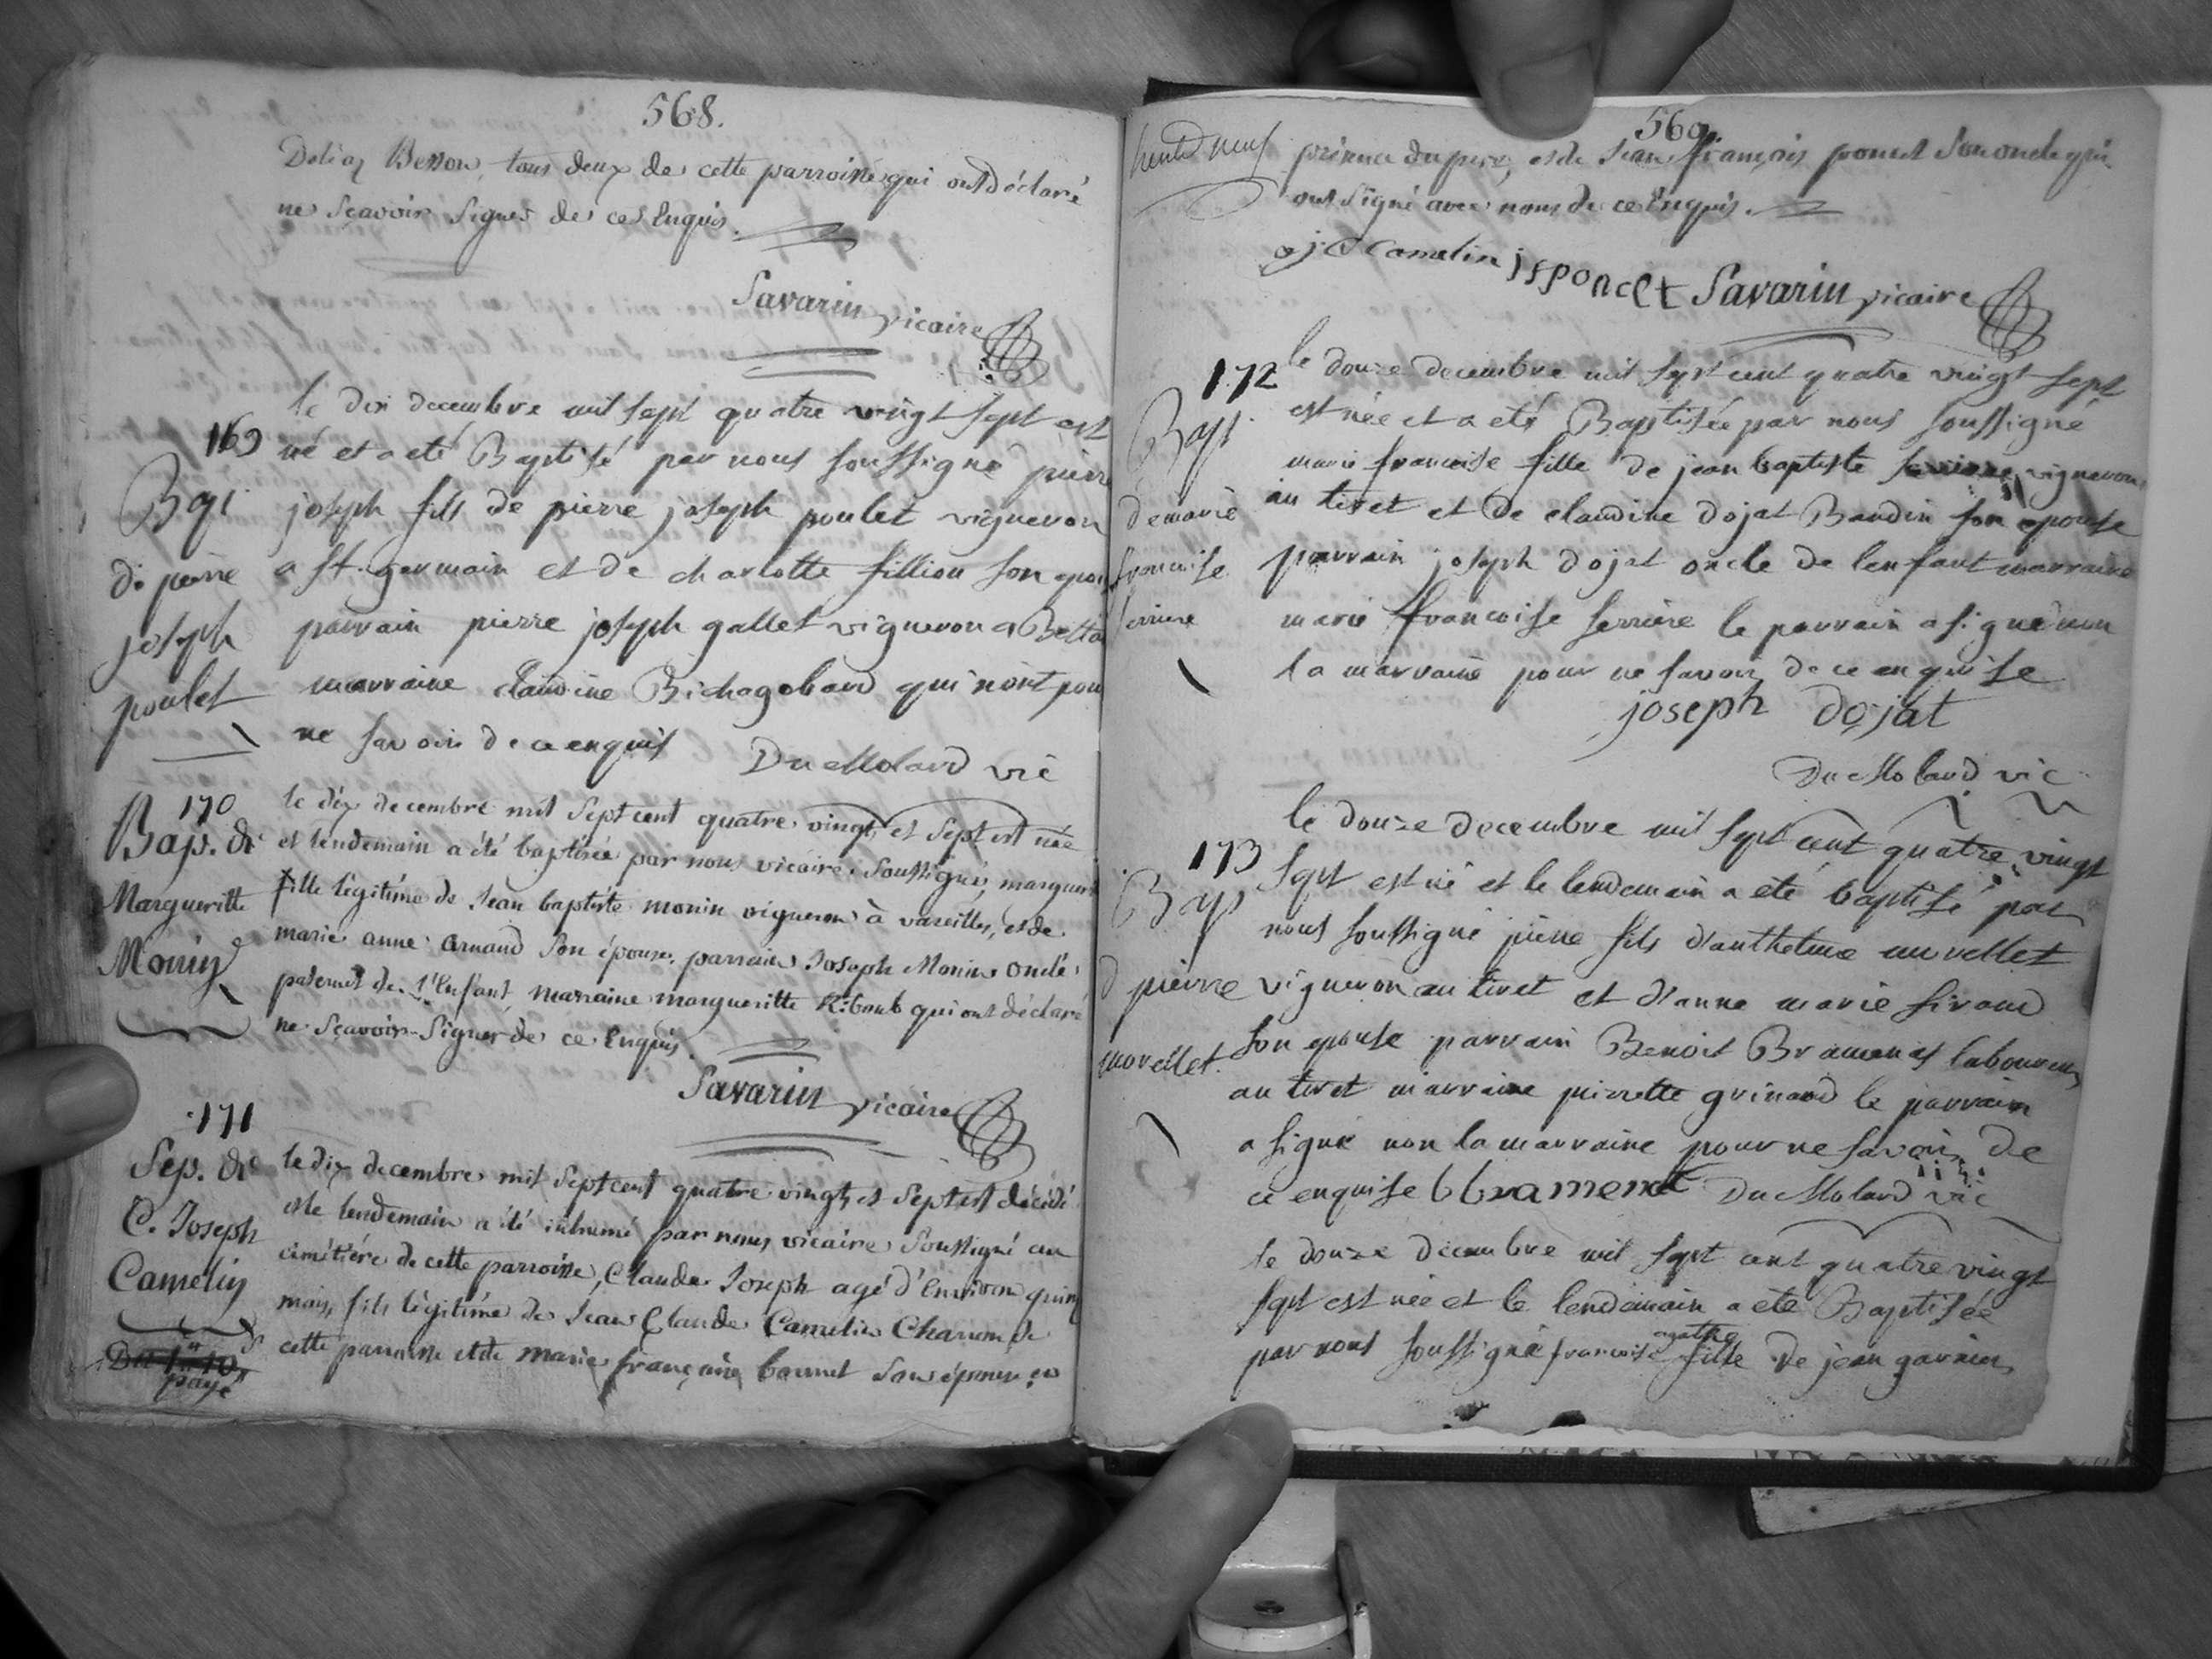 568.
Besson, tous deux de cette parroisse qui ont déclaré
ne sçavoir signer de ce enquis.
Savarin vicaire
169
Bap.
de pierre
joseph
poulet
le dix decembre mil sept quatre vingt sept est
né et a eté Baptisé par nous soussigné pierre
joseph fils de pierre joseph poulet vigneron
a st. germain et de charlotte fillion son
parrain pierre joseph gallet vigneron a
marraine claudine qui n'ont pou
ne savoir de ce enquis
DuMolard vic
170
Bap. de
Margueritte
Monin
le dix decembre mil sept cent quatre vingt et sept est née
et lendemain a été baptisée par nous vicaire soussigné,
fille légitime de Jean baptiste monin vigneron à vareilles, et de
marie anne arnaud son épouse, parrain Joseph Monin oncle
paternel de l'enfant marraine margueritte qui ont déclaré
ne sçavoir signer de ce enquis.
Savarin vicaire
171
Sep. de
C. Joseph
Camelin
payé
le dix decembre mil sept cent quatre vingt et sept est décédé
et le lendemain a été inhumé par nous vicaire soussigné au
cimetiére de cette parroisse, Claude Joseph agé d'environ
mois, fils légitime de Jean Claude Camelin de
cette parroisse et de marie françoise son épouse en
569.
présence du pere, et de Jean françois poncet son oncle qui
ont signé avec nous de ce enquis.
j c camelin jfponcet Savarin vicaire
172
Bap.
de marie
francoise
serriere
le douze decembre mil sept cent quatre vingt sept
est née et a eté Baptisée par nous soussigné
marie francoise fille de jean baptiste serriere vigneron
au tiret et de claudine dojat Baudin son epouse
parrain joseph dojat oncle de lenfant marraine
marie francoise serriere le parrain a signé non
la marraine pour ne savoir de ce enquise
joseph dojat
DuMolard vic
173
Bap
d pierre
morellet.
le douze decembre mil sept cent quatre vingt
sept est né et le lendemain a eté baptisé par
nous soussigné pierre fils d'anthelme
vigneron au tiret et d'anne marie siraud
son epouse parrain Benoit laboureur
au tiret marraine pierrette grinand le parrain
a signé non la marraine pour ne savoir de
ce enquise DuMolard vic
le douze decembre mil sept cent quatre vingt
sept est née et le lendemain a eté Baptisée
par nous soussigné francoise agathe fille de jean garnier